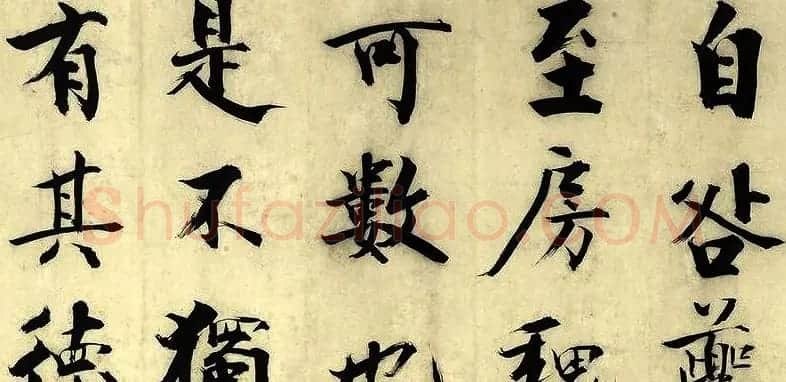 自咎夔
至房魏
可數也
是不獨
有其德
Shufaziliao.COM